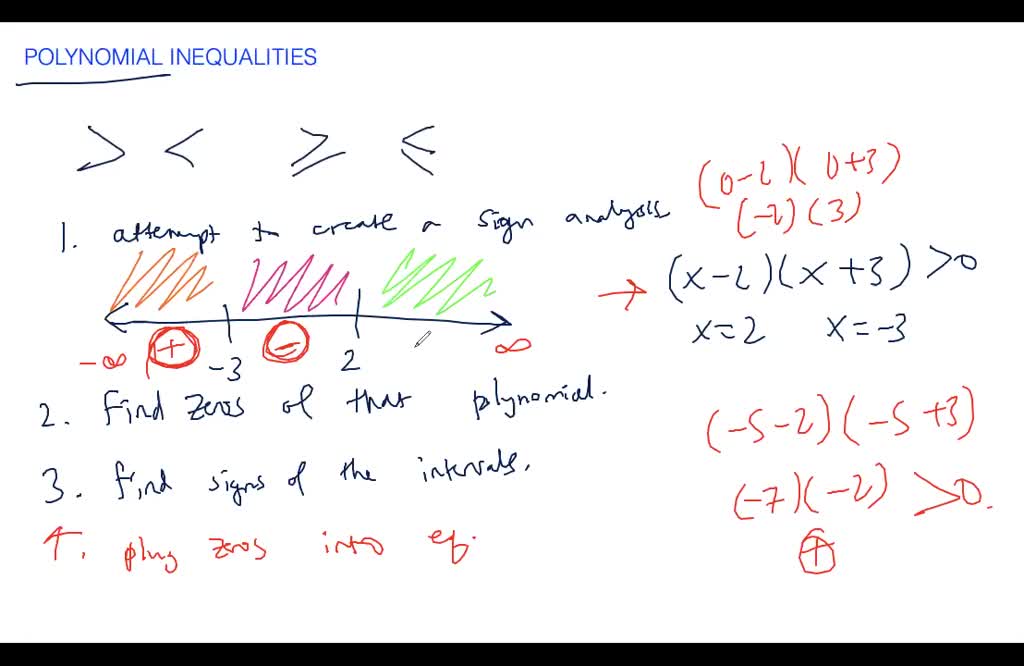 POLYNOMIAL INEQUALITIES
> < ≥ ≤
(0-2)(0+3)
(-2)(3)
1. attempt to create a sign analysis
(x-2)(x+3)>0
x=2 x=-3
+ -
-∞ -3 2 ∞
2. Find zeros of that polynomial.
(-5-2)(-5+3)
3. Find signs of the intervals.
(-7)(-2) >0.
↑. plug zeros into eq.
+